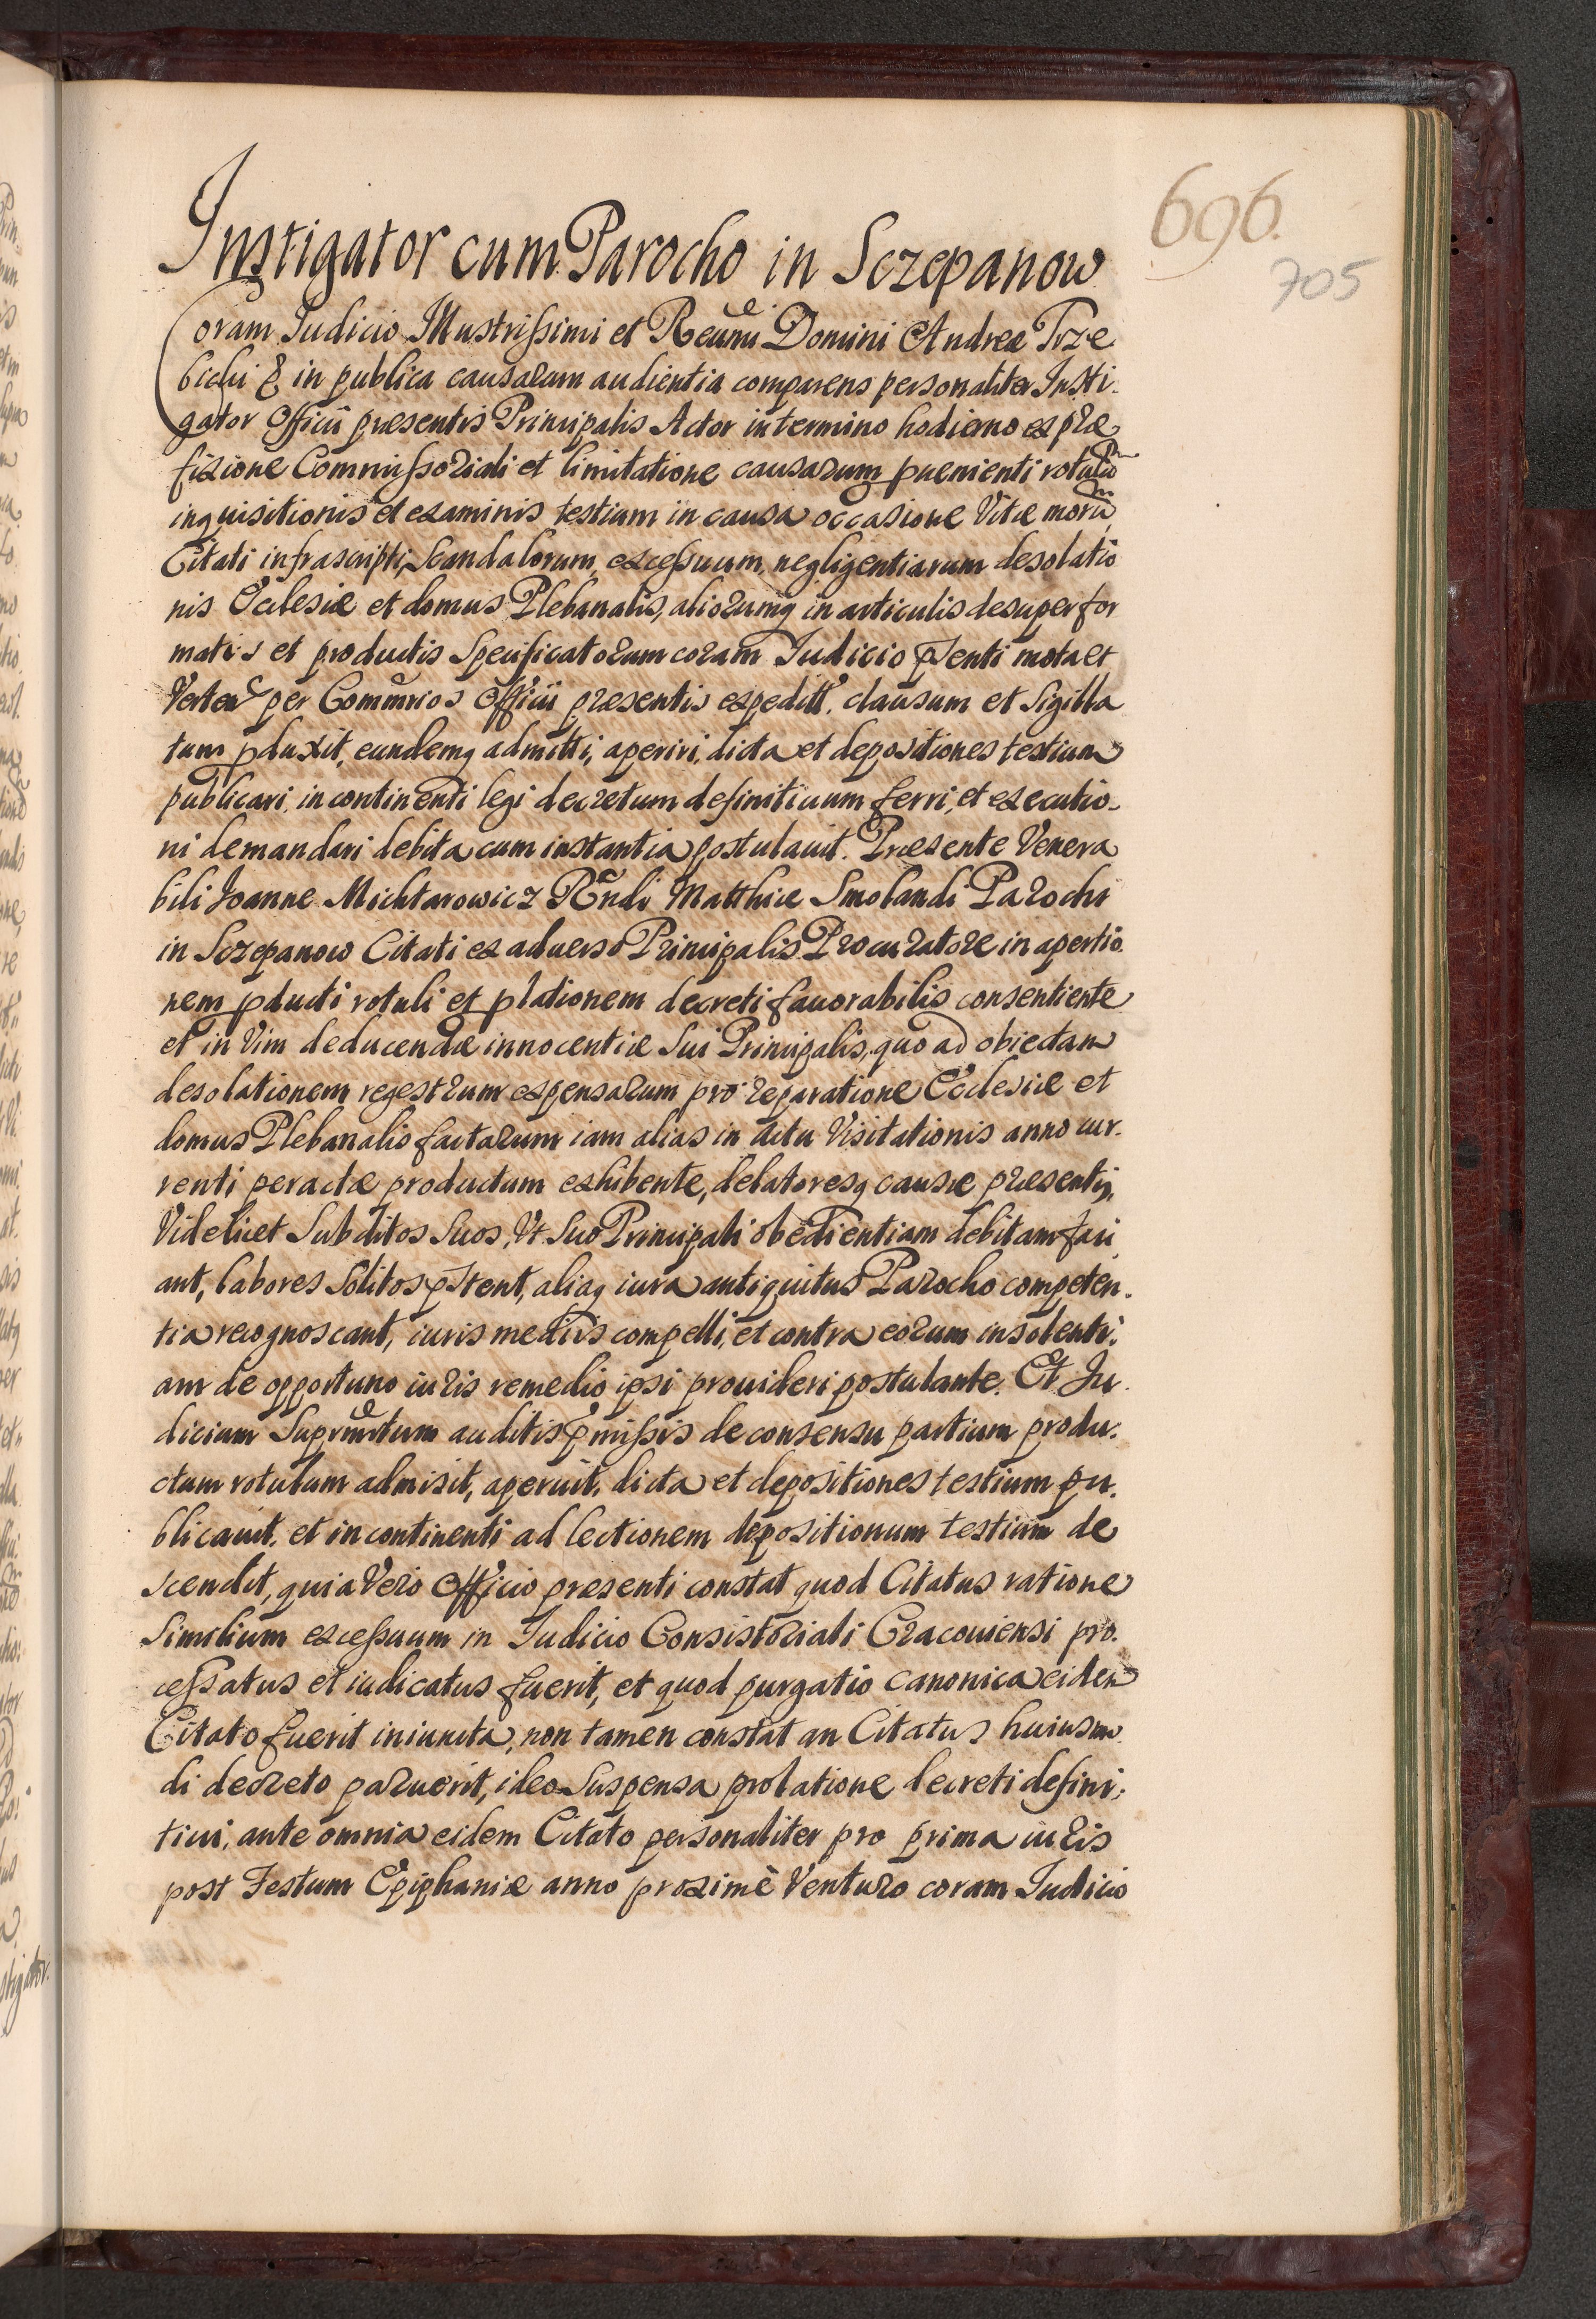 696.
705
Instigator cum Parocho in Sczepanow
Coram Iudicio Illustrissimi et Reumi Domini Andreæ Trze
bicki & in publica causarum audientia comparens personaliter Insti-
gator Officii præsentis Principalis Actor in termino hodierno ex præ
fixione Commissoriali et limitatione causarum puenienti rotulu
inquisitionis et examinis testium in causa occasione Vitæ moru
Citati infrascripti, Scandalorum, excessuum, negligentiarum desolatio
nis Ecclesiæ et domus Plebanalis, aliorumq in articulis desuper for
matis et productis Specificatorum coram Iudicio pnti mota et
Verten per Commrios Officii præsentis expeditt. clausum et Sigilla
tum pduxit, eundemq admitti, aperiri, dicta et depositiones testium
publicari, incontinenti legi decretum definitiuum ferri, et executio-
ni demandari debita cum instantia postulauit. Præsente Venera
bili Joanne Michtarowicz Rndi Matthiæ Smolandi Parochi
in Sczepanow Citati ex aduerso Principalis Procuratore in apertio
nem pducti rotuli et plationem decreti fauorabilis consentiente
et in Vim deducendæ innocentiæ Sui Principalis, quo ad obiectam
desolationem regestrum expensarum pro reparatione Ecclesiæ et
domus Plebanalis factarum iam alias in actu Visitationis anno cur-
renti peractæ productum exhibente, delatoresq causæ præsentis,
Videlicet Subditos Suos, Vt Suo Principali obedientiam debitam faci
ant, labores Solitos pstent, aliaq iura antiquitus Parocho competen-
tia recognoscant, iuris mediis compelli, et contra eorum insolenti-
am de opportuno iuris remedio ipsi prouideri postulante. Et Iu-
dicium Suprmtum auditis pmissis de consensu partium produ-
ctum rotulum admisit, aperuit, dicta et depositiones testium pu-
blicauit, et incontinenti ad lectionem depositionum testium de
scendit, quia Vero Officio præsenti constat quod Citatus ratione
Similium excessuum in Iudicio Consistoriali Cracouiensi pro-
cessatus et iudicatus fuerit, et quod purgatio canonica eidem
Citato fuerit iniuncta, non tamen constat an Citatus huiusmo
di decreto paruerit, ideo Suspensa prolatione decreti defini-
tiui, ante omnia eidem Citato personaliter pro prima iuris
post Festum Epiphaniæ anno proximè Venturo coram Iudicio